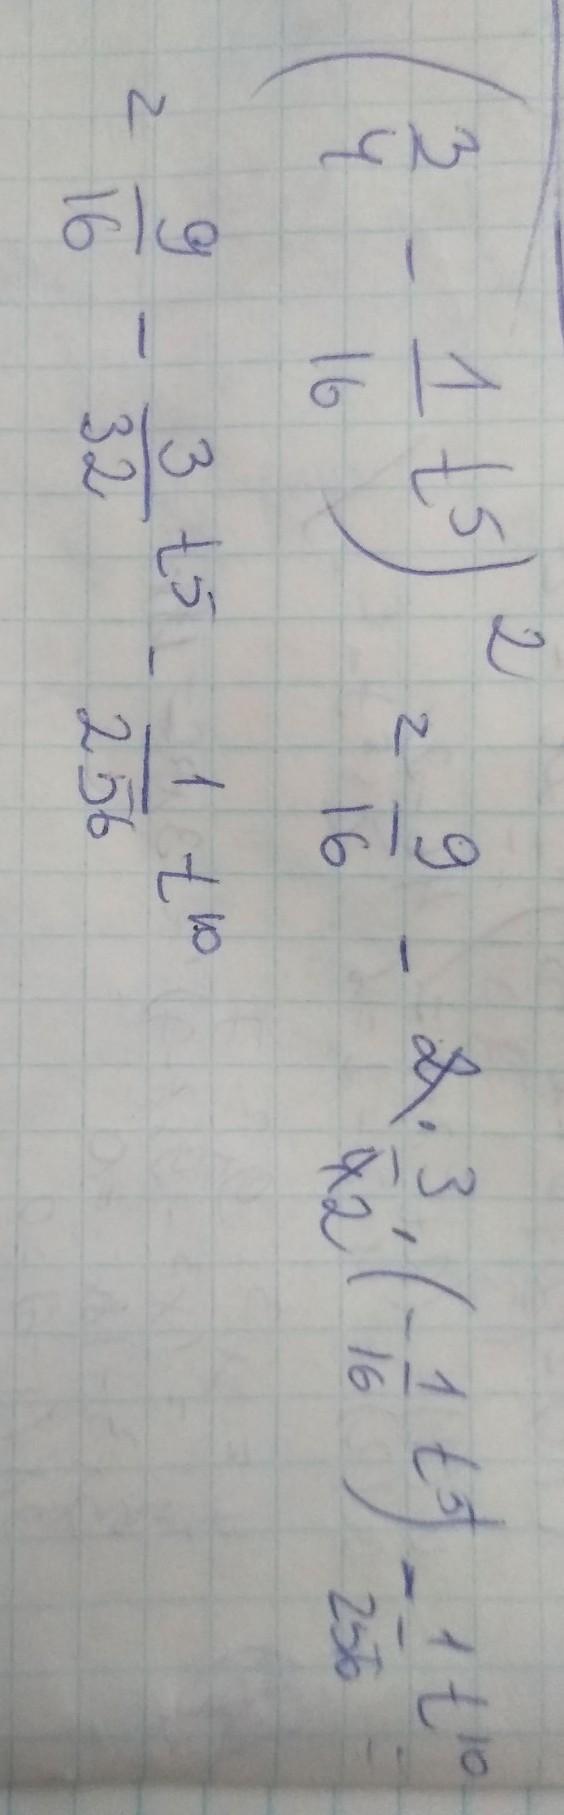 (3/4 - 1/16 t⁵)² = 9/16 - 2 · 3/42 · (- 1/16 t⁵) - 1/256 t¹⁰ =
= 9/16 - 3/32 t⁵ - 1/256 t¹⁰